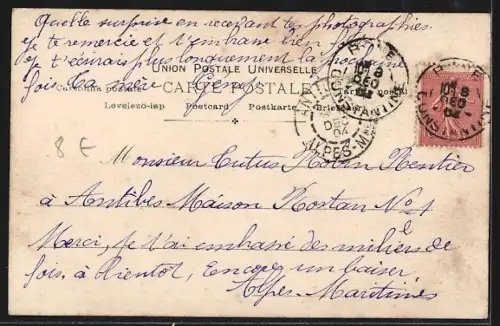 Quelle surprise en recevant tes photographies
je te remercie et t'embrasse bien fort
je t'écrirais plus longuement la prochaine
fois. Ta mère
UNION POSTALE UNIVERSELLE
CARTE POSTALE
Levelező-lap Postcard Postkarte
CONSTANTINE
ALPES-MARITIMES
8 DEC 04
CONSTANTINE
8 €
Monsieur Rentier
à Antibes Maison Rostan No 1
Merci, Je t'ai embrassé des milliers de
fois à bientôt, Encore un baiser
Alpes Maritimes